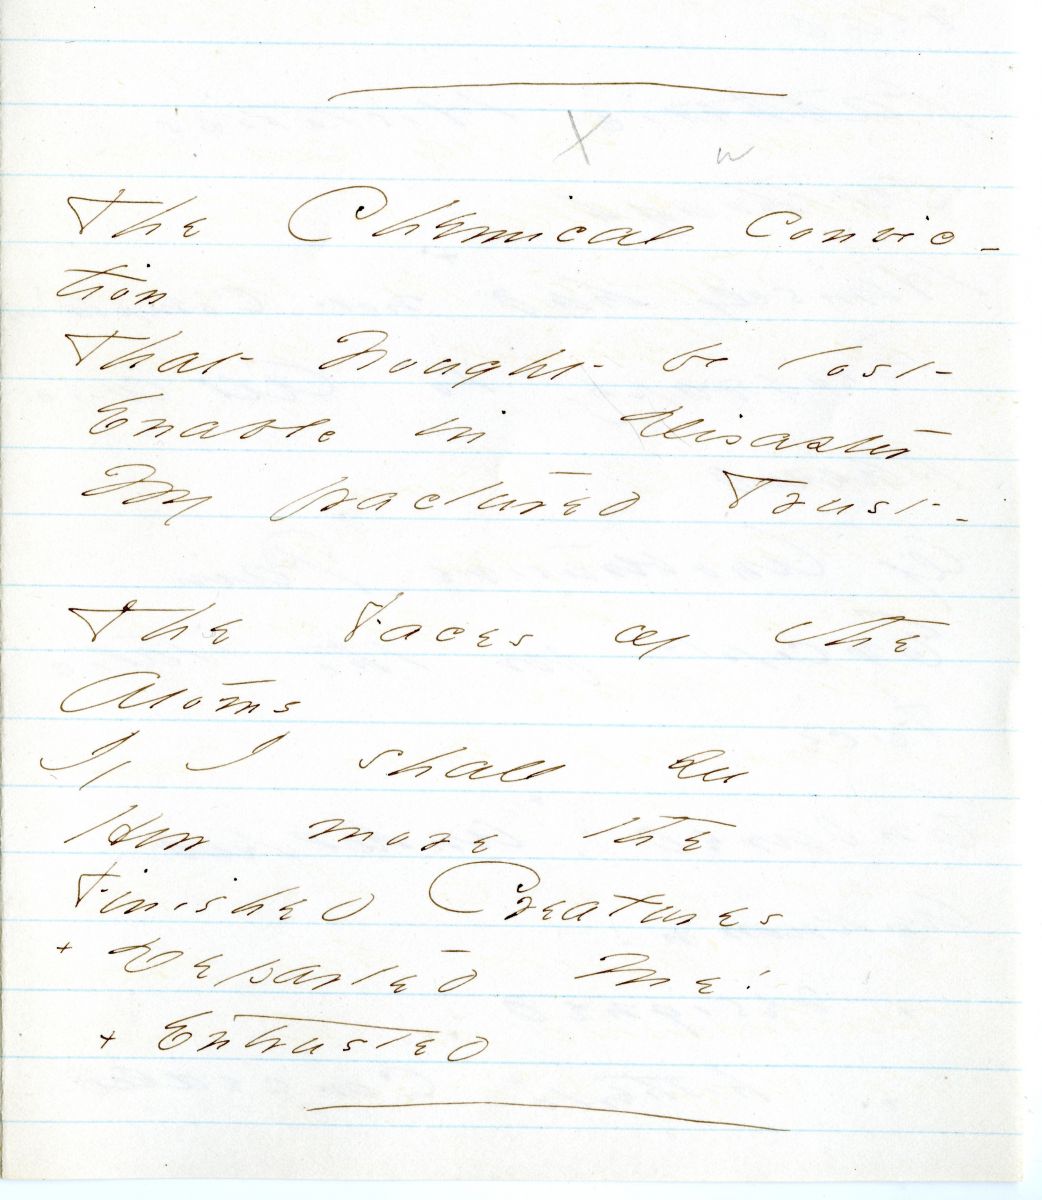 X w
The Chemical Convic-
tion
That Nought be lost
Enable in Disaster
My fractured Trust -
The Faces of the
Atoms
If I shall see
How more the
Finished Creatures
+ Departed Me!
+ Entrusted